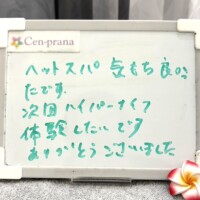 Cen-prana
ヘットスパ 気もち良かっ
たです。
次回ハイパーナイフ
体験したいです
ありがとうございました